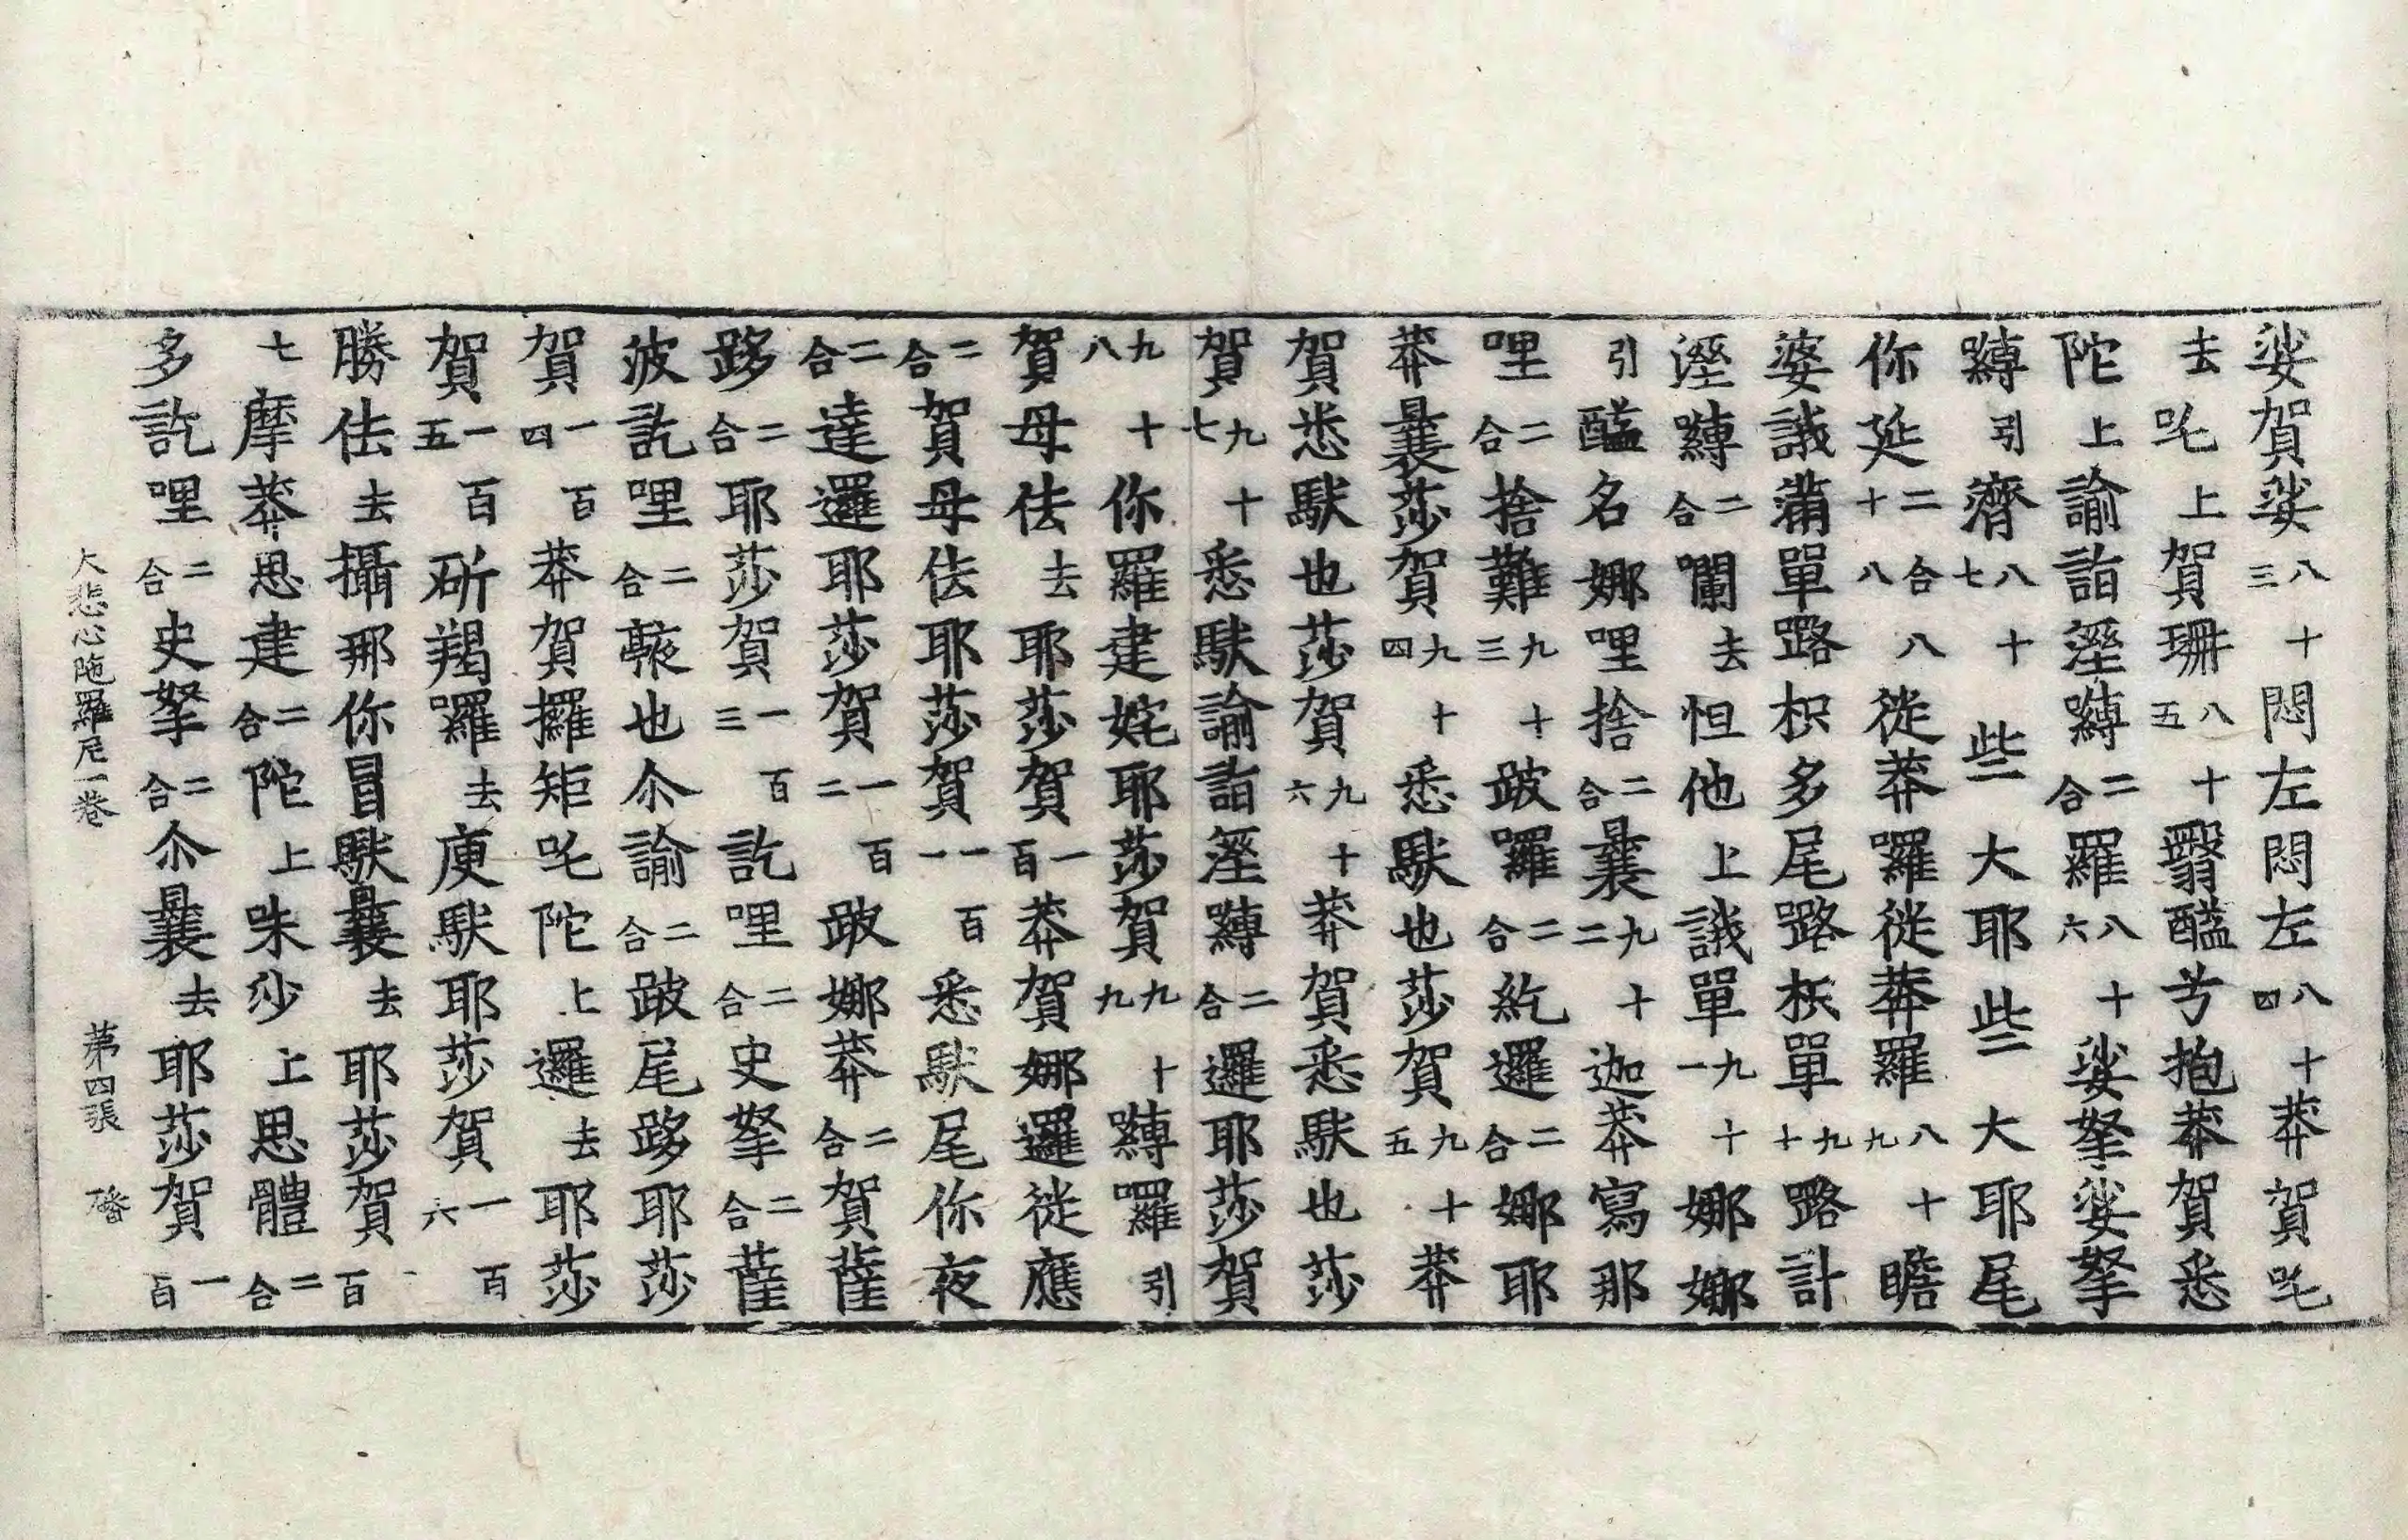 娑賀娑八十三悶左悶左八十四莽賀吒
去吒上賀珊八十五翳醯兮抱莽賀悉
陀上諭詣溼嚩二合羅八十六娑拏娑拏
嚩引齎八十七些大耶些大耶尾
你延二合十八八徙莽囉徙莽羅八十九瞻
婆誐蒲單路枳多尾路枳單九十路計
溼嚩二合㘓去怛他上誐單九十一娜娜
引醯名娜哩捨二合曩九十二迦莽寫那
哩二合捨難九十三跛囉二合紇邏二合娜耶
莽曩莎賀九十四悉馱也莎賀九十五莽
賀悉馱也莎賀九十六莽賀悉馱也莎
賀九十七悉馱諭詣溼嚩二合邏耶莎賀
九十八你羅建姹耶莎賀九十九嚩囉引
賀母佉去耶莎賀一百莽賀娜邏徙應
二合賀母佉耶莎賀一百一悉馱尾你夜
二合達邏耶莎賀一百二跛娜莽二合賀薩
跢二合耶莎賀一百三訖哩二合史拏二合薩
波訖哩二合也尒諭二合跛尾跢耶莎
賀一百四莽賀攞矩吒陀上邏去耶莎
賀一百五斫羯囉去庾馱耶莎賀一百六
勝佉去攝那你冒馱曩去耶莎賀百
七摩莽思建二合陀上味沙上思體二合
多訖哩二合史拏二合尒曩去耶莎賀一百
大悲心陁羅尼一卷 第四張